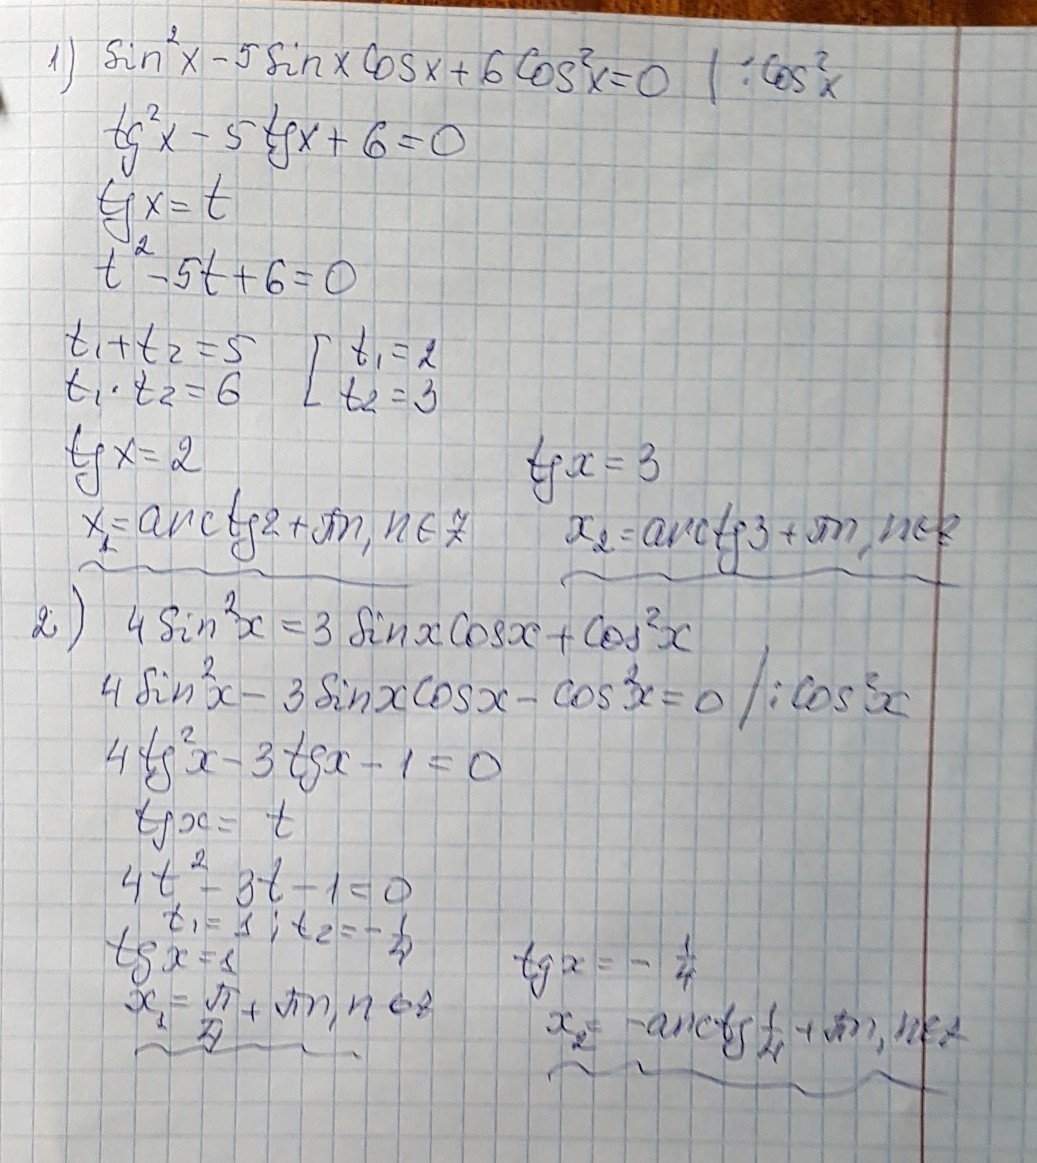 1) sin²x - 5 sin x cos x + 6 cos²x = 0 | : cos²x
tg²x - 5 tg x + 6 = 0
tg x = t
t² - 5t + 6 = 0
t₁ + t₂ = 5 [ t₁ = 2
t₁ · t₂ = 6 t₂ = 3
tg x = 2 tg x = 3
x₁ = arctg 2 + πn, n ∈ Z x₂ = arctg 3 + πn, n ∈ Z
2) 4 sin²x = 3 sin x cos x + cos²x
4 sin²x - 3 sin x cos x - cos²x = 0 / : cos²x
4 tg²x - 3 tg x - 1 = 0
tg x = t
4t² - 3t - 1 = 0
t₁ = 1 ; t₂ = - 1/4
tg x = 1 tg x = - 1/4
x₁ = π/4 + πn, n ∈ Z x₂ = - arctg 1/4 + πn, n ∈ Z